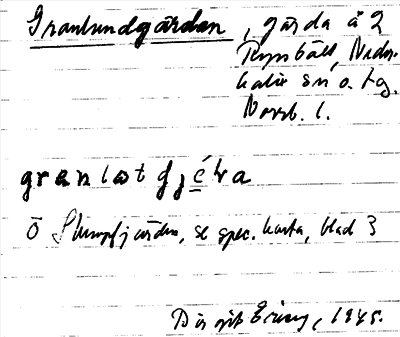 Granlundgärdan, gärda å 2
Rynbäck, Neder-
kalix sn o. tg.
Norrb. l.
granlωt g j é ṛa
Ö Slumpfjärden, se spec. karta, blad 3
Birgit Ericz, 1945.